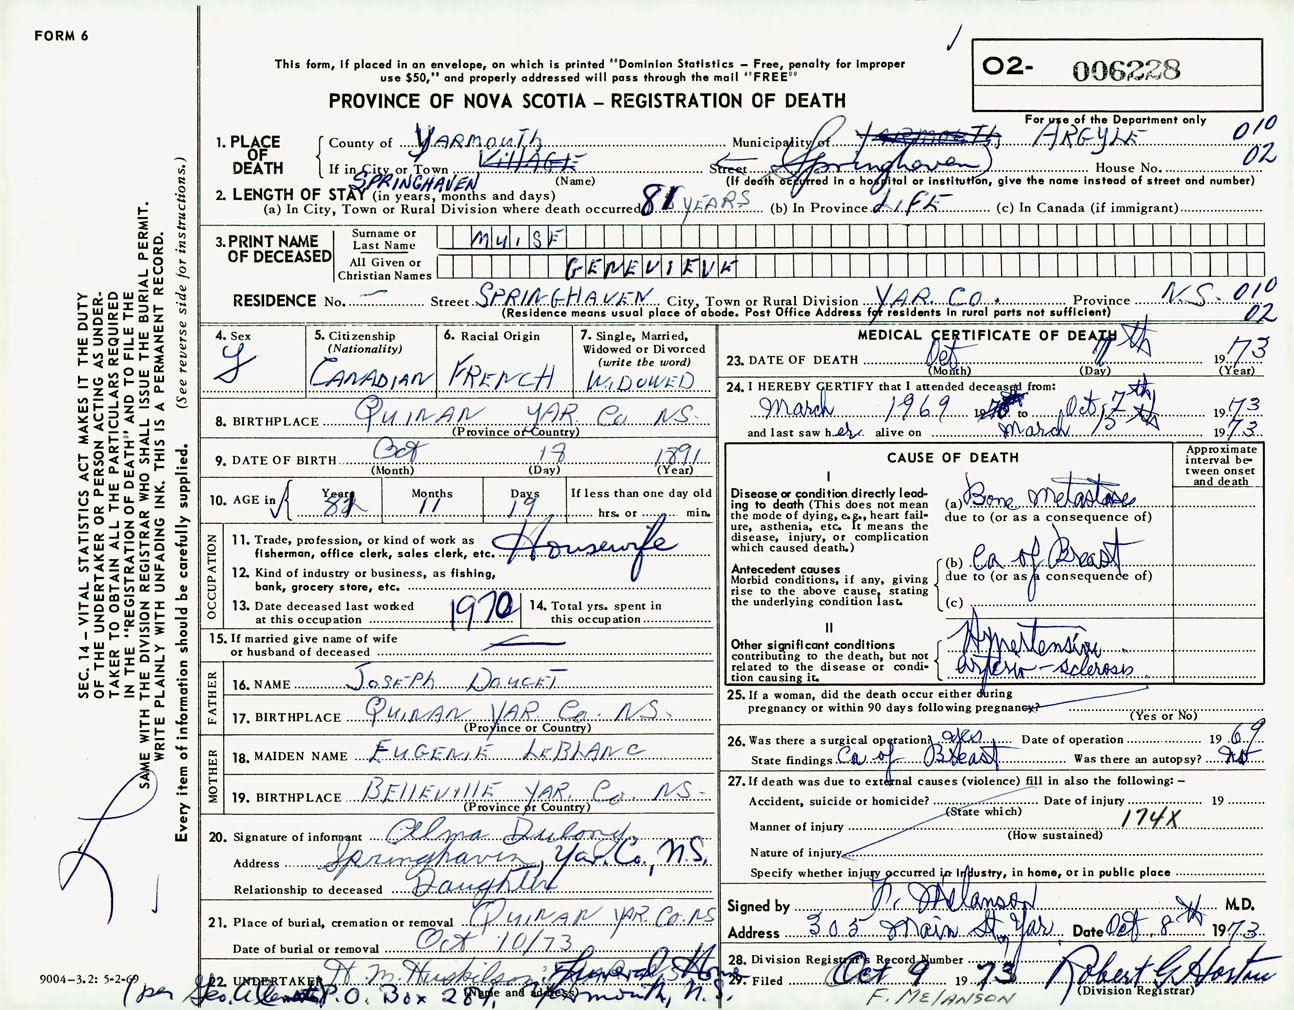 FORM 6
This form, if placed in an envelope, on which is printed "Dominion Statistics – Free, penalty for improper
use $50," and properly addressed will pass through the mail "FREE"
PROVINCE OF NOVA SCOTIA – REGISTRATION OF DEATH
O2- 006228
For use of the Department only
010
02
1. PLACE OF DEATH
County of YARMOUTH Municipality of YARMOUTH ARGYLE
If in City or Town VILLAGE Street (Springhaven) House No.
SPRINGHAVEN (Name) (If death occurred in a hospital or institution, give the name instead of street and number)
2. LENGTH OF STAY (in years, months and days)
(a) In City, Town or Rural Division where death occurred 81 YEARS (b) In Province LIFE (c) In Canada (if immigrant)
3. PRINT NAME OF DECEASED
Surname or Last Name MUISE
All Given or Christian Names GENEVIEVE
RESIDENCE No. — Street SPRINGHAVEN City, Town or Rural Division YAR. CO. Province N.S. 010
(Residence means usual place of abode. Post Office Address for residents in rural parts not sufficient) 02
4. Sex F
5. Citizenship (Nationality) CANADIAN
6. Racial Origin FRENCH
7. Single, Married, Widowed or Divorced (write the word) WIDOWED
8. BIRTHPLACE QUINAN YAR Co NS.
(Province or Country)
9. DATE OF BIRTH Oct 18 1891
(Month) (Day) (Year)
10. AGE in Years Months 11 Days 19 If less than one day old hrs. or min.
OCCUPATION
11. Trade, profession, or kind of work as fisherman, office clerk, sales clerk, etc. Housewife
12. Kind of industry or business, as fishing, bank, grocery store, etc.
13. Date deceased last worked at this occupation 1970
14. Total yrs. spent in this occupation
15. If married give name of wife or husband of deceased
FATHER
16. NAME JOSEPH DOUCET
17. BIRTHPLACE QUINAN YAR. Co. NS.
(Province or Country)
MOTHER
18. MAIDEN NAME EUGENIE LEBLANC
19. BIRTHPLACE BELLEVILLE YAR. Co. NS-
(Province or Country)
20. Signature of informant Elma Dulong
Address Springhaven, Yar. Co., N.S.
Relationship to deceased Daughter
21. Place of burial, cremation or removal QUINAN YAR. CO. NS
Date of burial or removal Oct 10/73
22. UNDERTAKER H. M. Huskilson Funeral Home
(per P.O. Box Yarmouth, N.S.
(Name and address)
MEDICAL CERTIFICATE OF DEATH
23. DATE OF DEATH Oct 7th 1973
(Month) (Day) (Year)
24. I HEREBY CERTIFY that I attended deceased from:
March 1969 19 to Oct 7th 1973
and last saw her alive on March 1973.
CAUSE OF DEATH
Approximate interval between onset and death
I
Disease or condition directly leading to death (This does not mean the mode of dying, e.g., heart failure, asthenia, etc. It means the disease, injury, or complication which caused death.)
(a) Bone metastases
due to (or as a consequence of)
(b) Ca of Breast
due to (or as a consequence of)
Antecedent causes
Morbid conditions, if any, giving rise to the above cause, stating the underlying condition last.
(c)
II
Other significant conditions contributing to the death, but not related to the disease or condition causing it.
Hypertension
arterio-sclerosis
25. If a woman, did the death occur either during pregnancy or within 90 days following pregnancy?
(Yes or No)
26. Was there a surgical operation? yes Date of operation 1969
State findings Ca of Breast Was there an autopsy? no
27. If death was due to external causes (violence) fill in also the following: –
Accident, suicide or homicide? Date of injury 19
(State which)
Manner of injury 174X
(How sustained)
Nature of injury
Specify whether injury occurred in Industry, in home, or in public place
Signed by F. Melanson M.D.
Address 305 Main St. Yar. Date Oct 8th 1973
28. Division Registrar's Record Number
29. Filed Oct 9 1973 Robert G. Horton
F. MELANSON (Division Registrar)
SEC. 14 – VITAL STATISTICS ACT MAKES IT THE DUTY
OF THE UNDERTAKER OR PERSON ACTING AS UNDER-
TAKER TO OBTAIN ALL THE PARTICULARS REQUIRED
IN THE "REGISTRATION OF DEATH" AND TO FILE THE
SAME WITH THE DIVISION REGISTRAR WHO SHALL ISSUE THE BURIAL PERMIT.
WRITE PLAINLY WITH UNFADING INK. THIS IS A PERMANENT RECORD.
Every item of information should be carefully supplied. (See reverse side for instructions.)
9004-3.2: 5-2-69